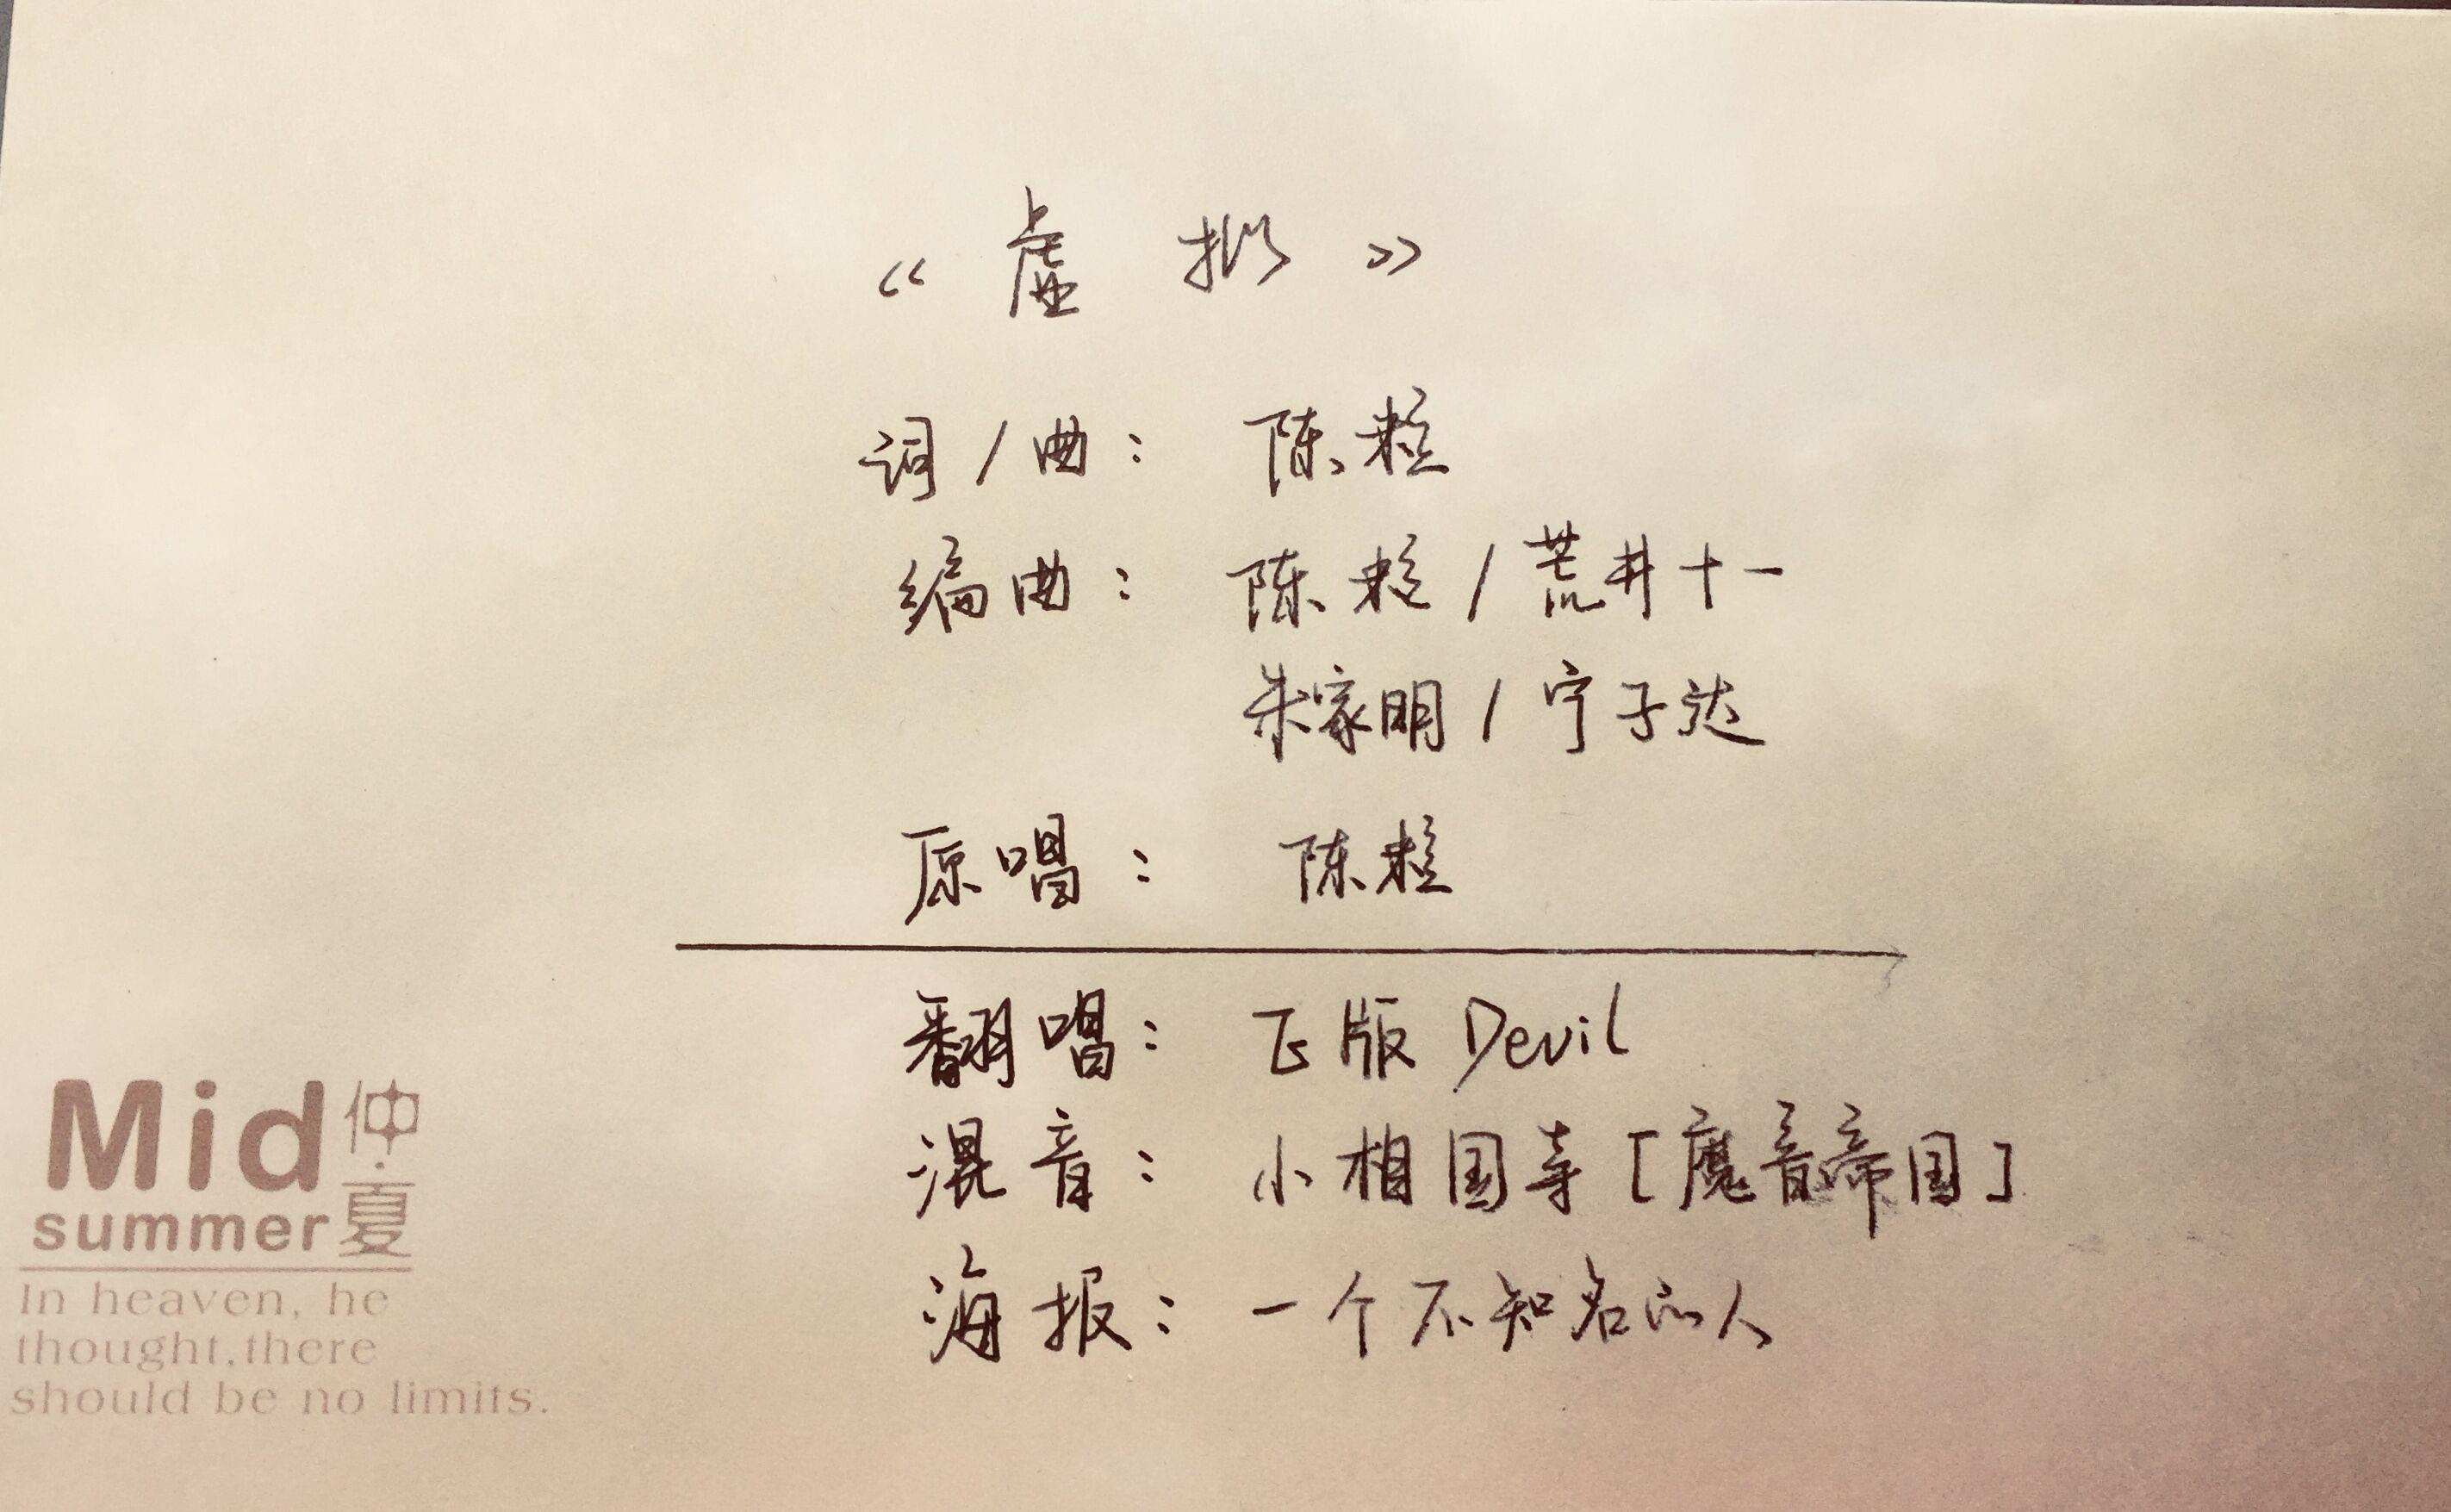 《虚拟》
词/曲: 陈粒
编曲: 陈粒/荒井十一
朱家明/宁子达
原唱: 陈粒
翻唱: 正版 Devil
混音: 小相国寺[魔音帝国]
海报: 一个不知名的人
Mid 仲·夏
summer
In heaven, he
thought,there
should be no limits.